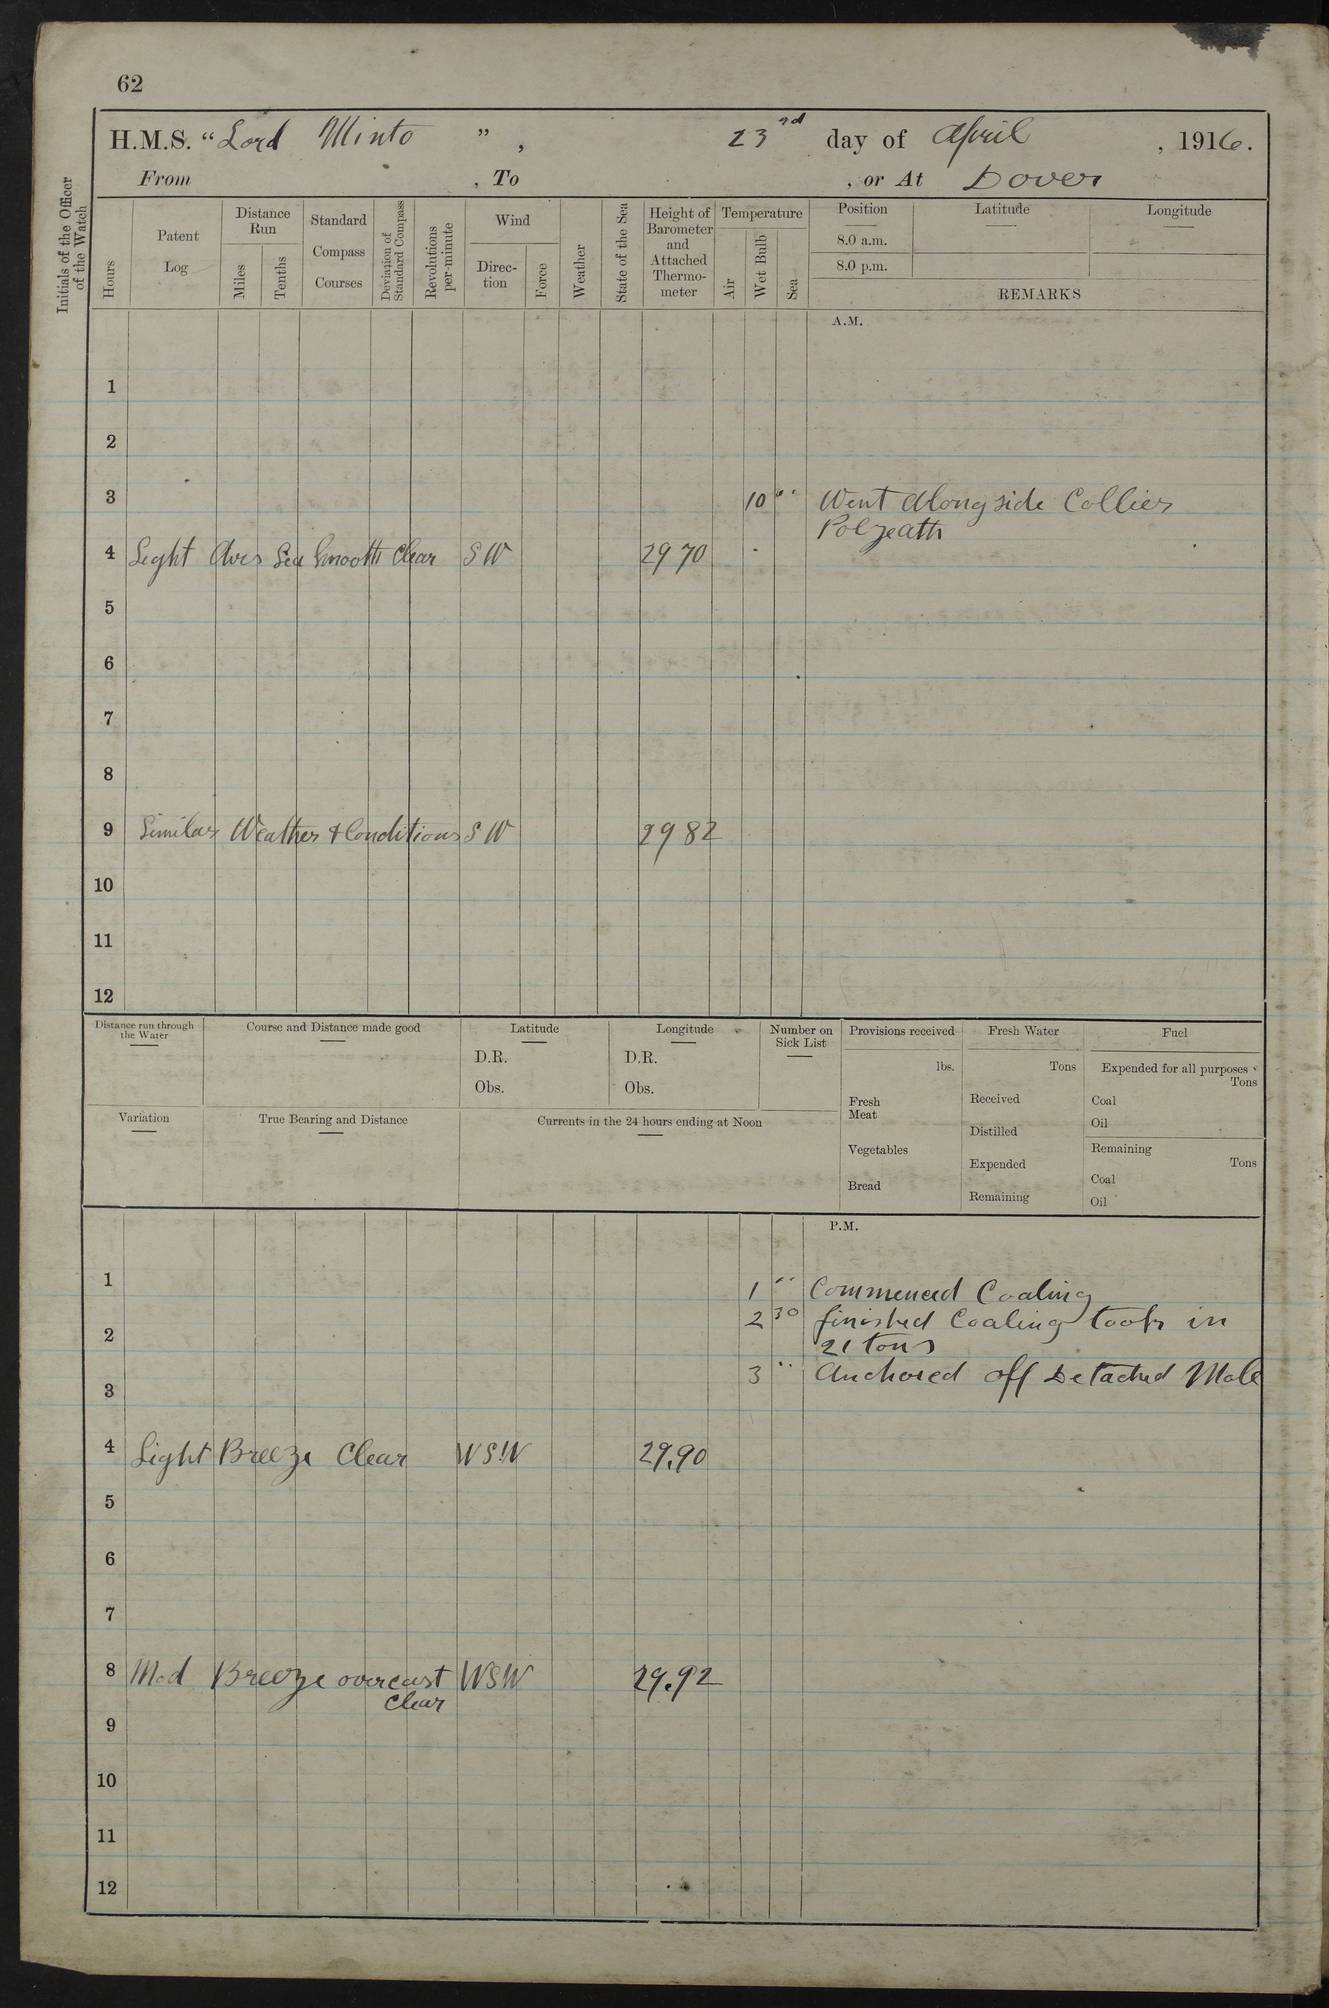 62
H.M.S. "Lord Minto", 23rd day of April, 1916.
From , To , or At Dover
Initials of the Officer of the Watch
Hours
Patent Log
Distance Run
Miles
Tenths
Standard Compass Courses
Deviation of Standard Compass
Revolutions per-minute
Wind
Direction
Force
Weather
State of the Sea
Height of Barometer and Attached Thermometer
Temperature
Air
Wet Bulb
Sea
Position
8.0 a.m.
8.0 p.m.
Latitude
Longitude
REMARKS
A.M.
1
2
3 10 " Went alongside Collier
Polzeath
4 Light Airs Sea Smooth Clear SW 29 70
5
6
7
8
9 Similar Weather & Conditions SW 29 82
10
11
12
Distance run through the Water
Course and Distance made good
Latitude
D.R.
Obs.
Longitude
D.R.
Obs.
Number on Sick List
Variation
True Bearing and Distance
Currents in the 24 hours ending at Noon
Provisions received
lbs.
Fresh Meat
Vegetables
Bread
Fresh Water
Tons
Received
Distilled
Expended
Remaining
Fuel
Expended for all purposes
Tons
Coal
Oil
Remaining
Tons
Coal
Oil
P.M.
1 1 " Commenced Coaling
2 2 30 finished Coaling took in
21 tons
3 3 " Anchored off Detached Mole
4 Light Breeze Clear WSW 29.90
5
6
7
8 Mod Breeze overcast WSW 29.92
clear
9
10
11
12